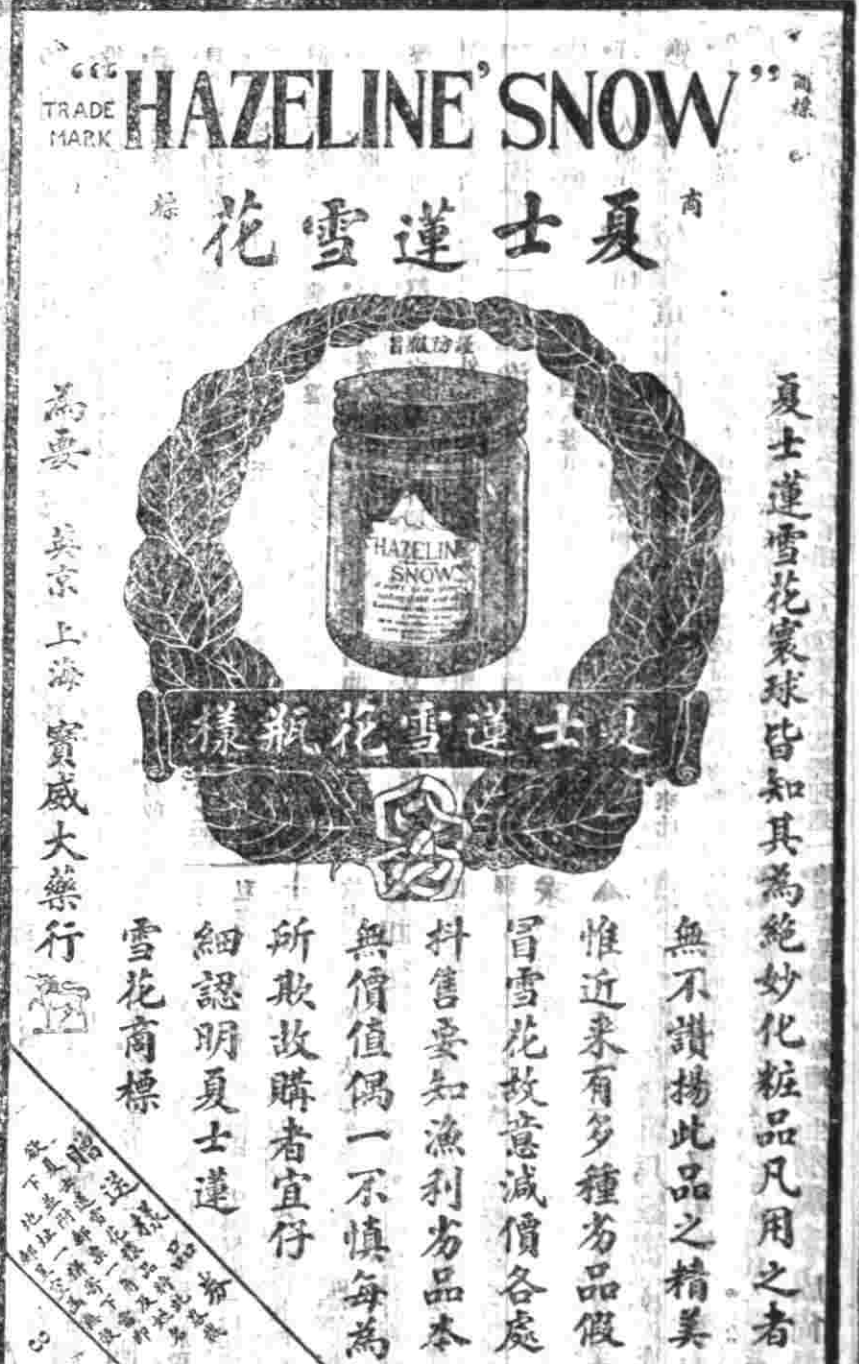 “‘HAZELINE’ SNOW”
TRADE MARK
商標
夏士蓮雪花
商標
謹防瓶冒
HAZELINE
SNOW
夏士蓮雪花瓶樣
夏士蓮雪花寰球皆知其為絕妙化粧品凡用之者
無不讚揚此品之精美
惟近来有多種劣品假
冒雪花故意減價各處
抖售要知漁利劣品本
無價值偶一不慎每為
所欺故購者宜仔
細認明夏士蓮
雪花商標
為要 英京上海寶威大藥行
贈送樣品券